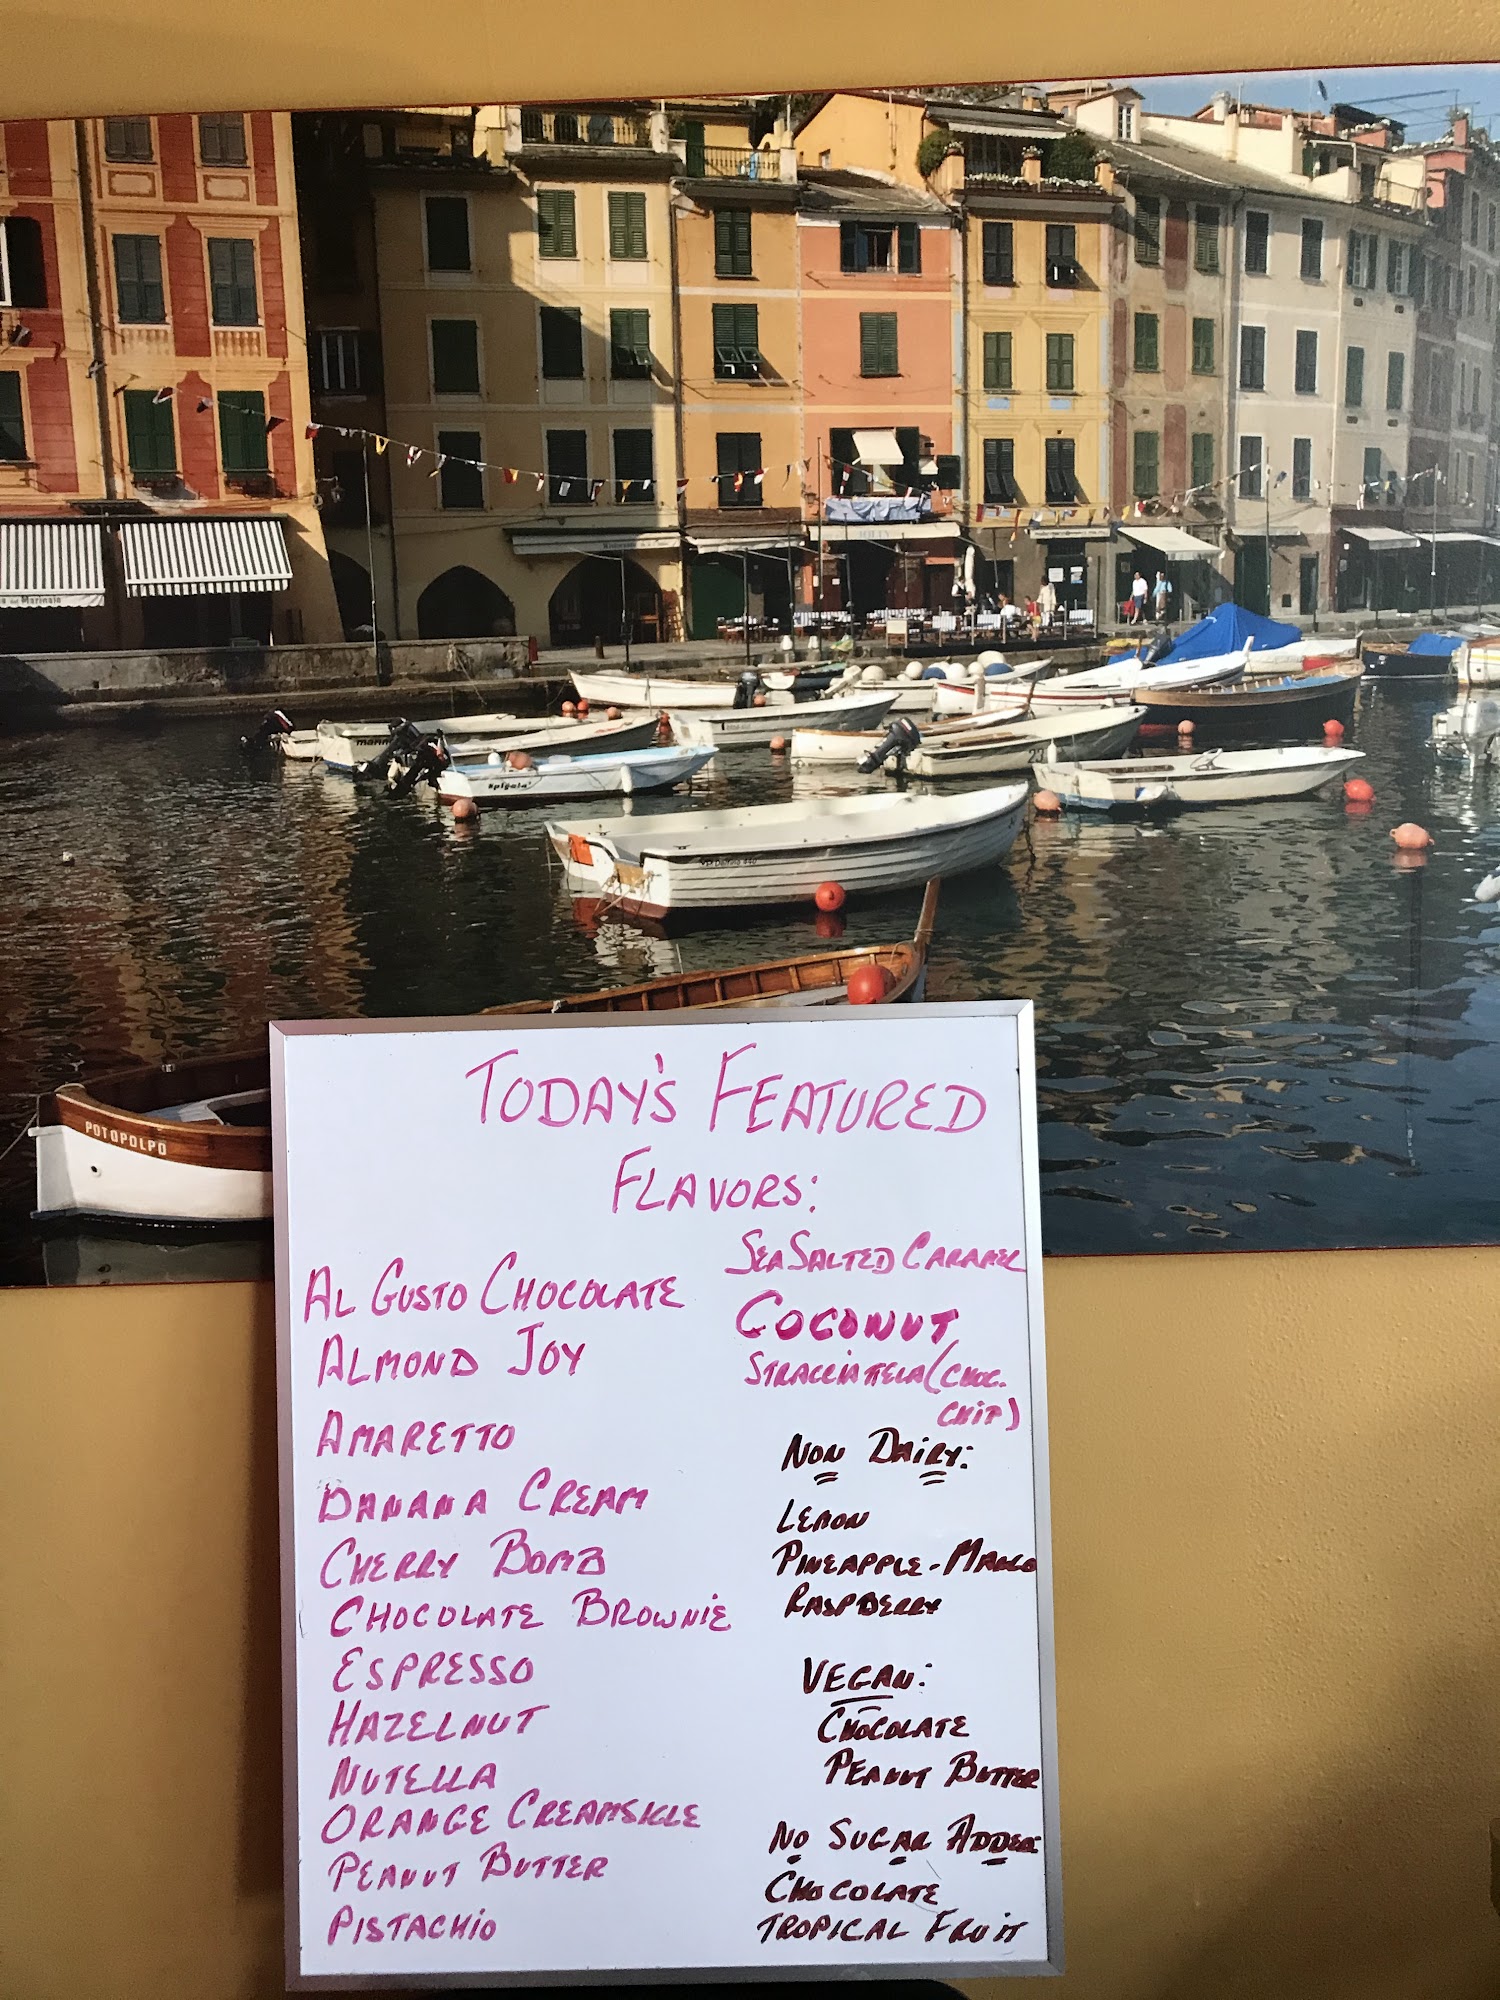 marin
spigola
23
POTOPOLPO
TODAY'S FEATURED
FLAVORS:
AL GUSTO CHOCOLATE
ALMOND JOY
AMARETTO
BANANA CREAM
CHERRY BOMB
CHOCOLATE BROWNIE
ESPRESSO
HAZELNUT
NUTELLA
ORANGE CREAMSICLE
PEANUT BUTTER
PISTACHIO
SEA SALTED CARAMEL
COCONUT
STRACCIATELLA (CHOC.
CHIP)
NON DAIRY:
LEMON
PINEAPPLE-MANGO
RASPBERRY
VEGAN:
CHOCOLATE
PEANUT BUTTER
NO SUGAR ADDED
CHOCOLATE
TROPICAL FRUIT